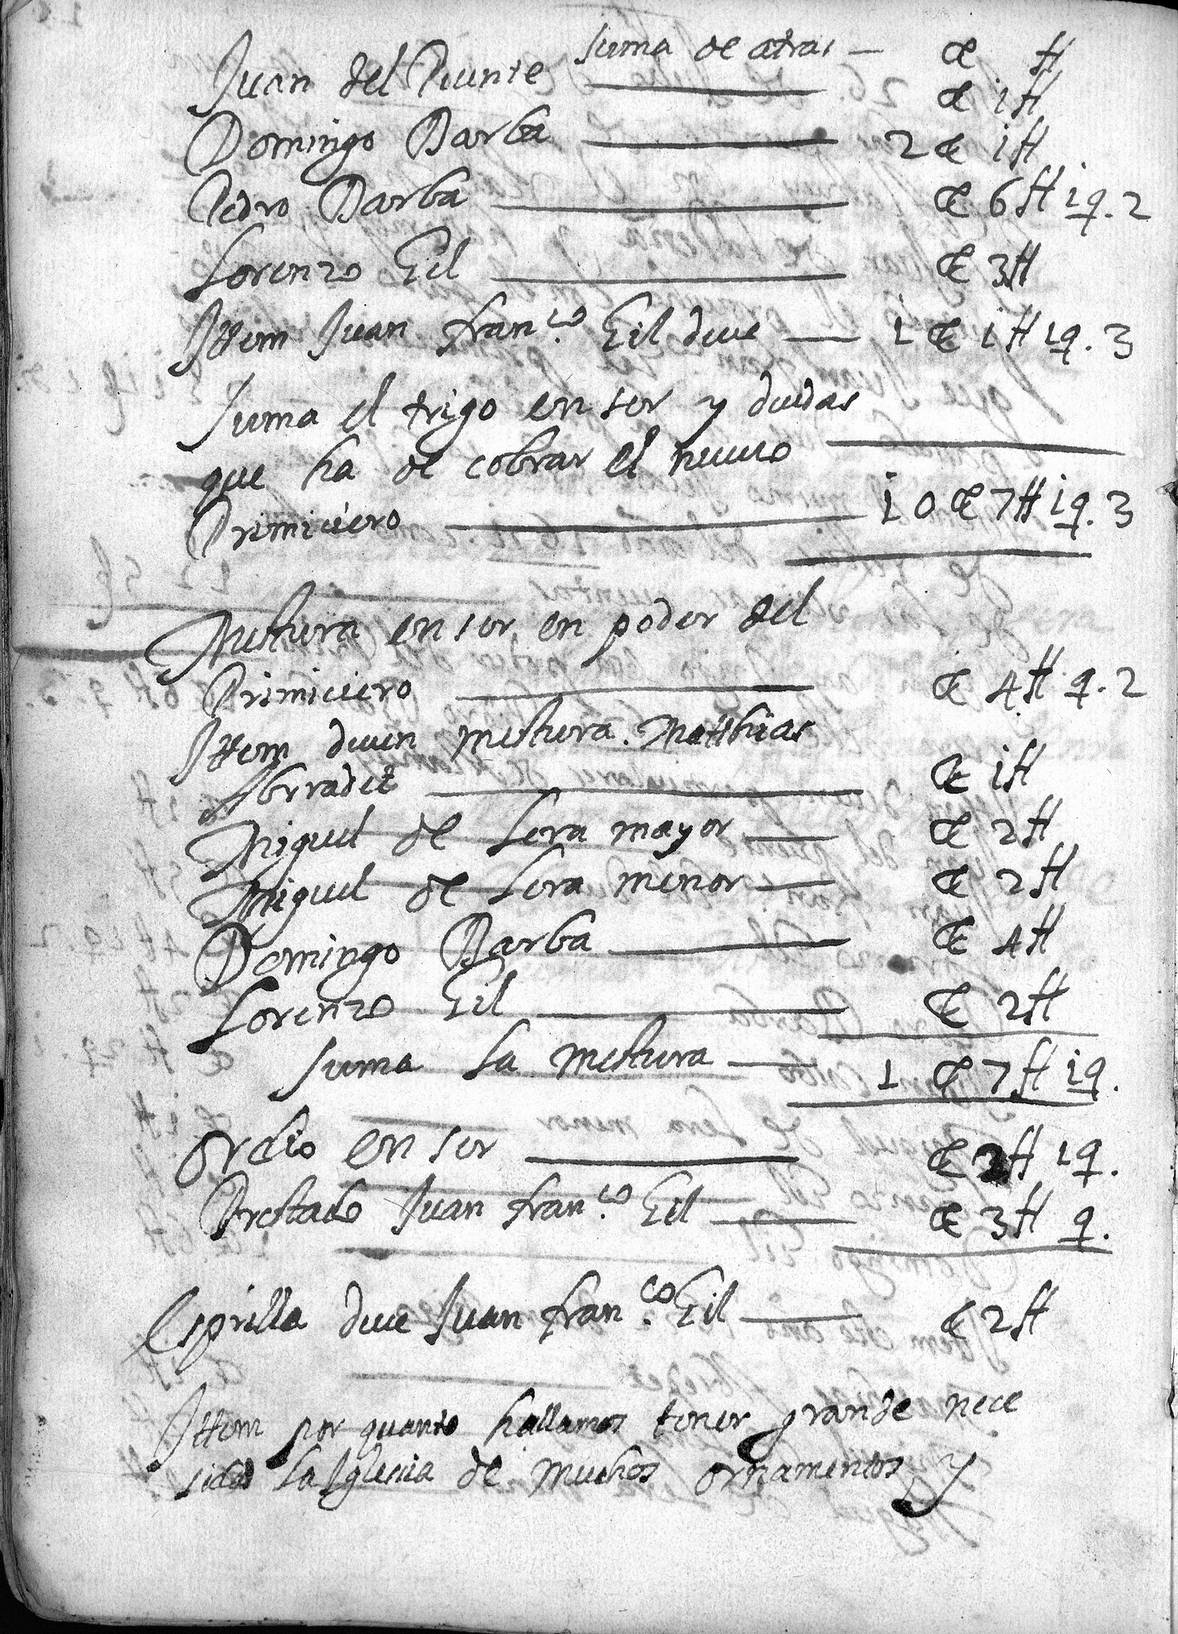 suma de atras — Cє H
Juan del Puente — Cє 1H
Domingo Barba — 2 Cє 1H
Pedro Barba — Cє 6H 1q. 2
Lorenzo Gil — Cє 3H
Ittem Juan fran.co Gil deue — 1 Cє 1H 1q. 3
Suma el trigo en ser y deudas
que ha de cobrar el nueuo
Primiciero — 10 Cє 7H 1q. 3
Mestura en ser, en poder del
Primiciero — Cє 4H q. 2
Ittem deuen mestura. Matthias
Abrradet — Cє 1H
Miguel de Lera mayor — Cє 2H
Miguel de Lera menor — Cє 2H
Domingo Barba — Cє 4H
Lorenzo Gil — Cє 2H
suma la mestura — 1 Cє 7H 1q.
Ordio en ser — Cє H 1q.
Prestado Juan fran.co Gil — Cє 3H q.
Esprilla deue Juan fran.co Gil — Cє 2H
Ittem por quanto hallamos tener grande nece
sidad la Iglesia de muchos ornamentos, y